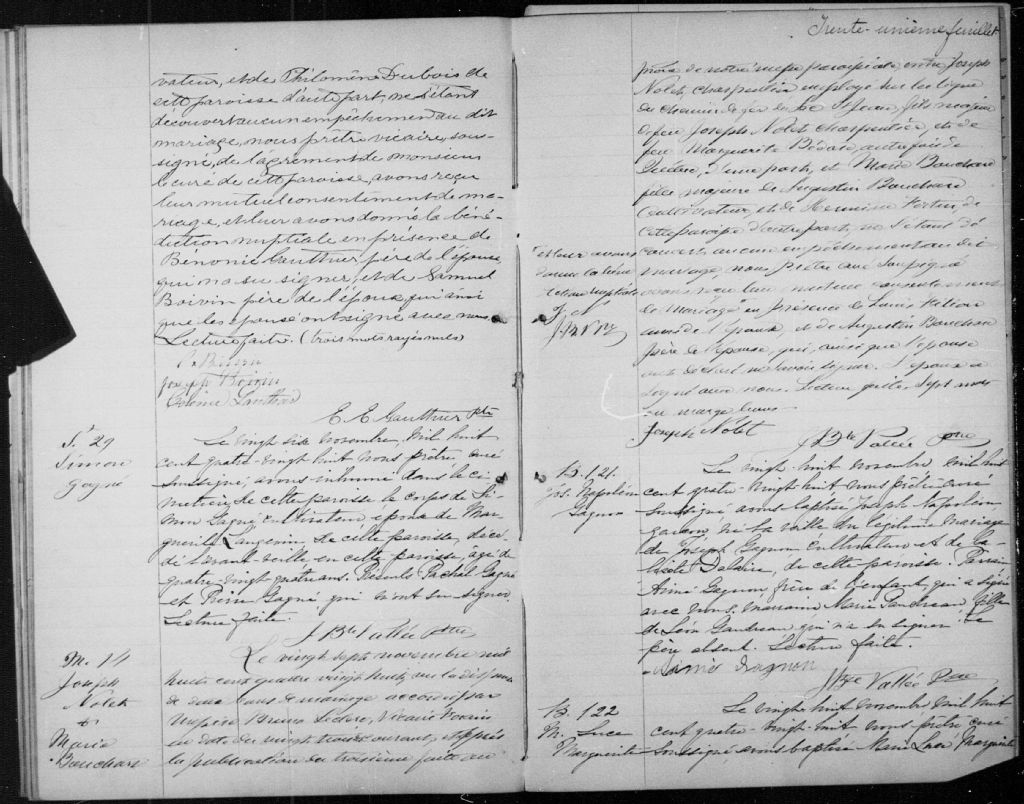 vateur, et de Philomène Dubois de
cette paroisse d'autre part, ne s'étant
découvert aucun empêchement au dit
mariage, nous prêtre vicaire, sous-
signé, de l'agrément de monsieur
le curé de cette paroisse, avons reçu
leur mutuel consentement de ma-
riage, et leur avons donné la béné-
diction nuptiale en présence de
Bénonie Gauthier père de l'épouse,
qui n'a su signer, et de Samuel
Boivin père de l'époux, qui ainsi
que les épouse ont signé avec nous
Lecture faite. (trois mots rayés nuls)
Boivin
Joseph Boivin
E. E. Gauthier Ptre
S. 29
Simon
Gagné
Le vingt six novembre, mil huit
cent quatre-vingt huit nous prêtre curé
soussigné, avons inhumé dans le ci-
metière de cette paroisse le corps de Si-
mon Gagné cultivateur époux de Mar-
guerite Langevin de cette paroisse, décé-
dé l'avant-veille en cette paroisse, agé de
quatre-vingt quatre ans. Présents Gagné
et Gagné qui n'ont su signer.
Lecture faite.
J Bte Vallée Ptre
M. 14
Joseph
Nolet
&
Marie
Bouchard
Le vingt sept novembre mil
huit cent quatre vingt huit, vu la dispense
de deux bans de mariage accordée par
Leclerc, Vicaire
en date du vingt courant, et après
la publication du troisième faite au
Trente-unième feuillet
prône de notre messe paroissiale entre Joseph
Nolet, charpentier employé sur la ligne
du chemin de fer du Lac St Jean, fils majeur
de feu Joseph Nolet charpentier, et de
feu Marguerite de
Québec, d'une part, et Marie Bouchard
fille majeure de Augustin Bouchard
Cultivateur, et de de
cette paroisse d'autre part, ne s'étant dé
couvert aucun empêchement au dit
mariage, nous Prêtre curé soussigné
avons reçu leur mutuel consentement
de Mariage en présence de Louis
de l'époux, et de Augustin Bouchard
père de l'épouse, qui, ainsi que l'épouse
ont déclaré ne savoir signer. L'époux a
signé avec nous. Lecture faite. Sept mots
en marge bons
Joseph Nolet
J Bte Vallée Ptre
et leur avons
donné la béné
diction nuptiale
J. N.
J. B. V. Ptre
B. 121.
Jos. Napoléon
Gagnon
Le vingt-huit novembre mil huit
cent quatre-vingt-huit nous prêtre curé
soussigné avons baptisé Joseph Napoléon
garçon, né la veille du légitime mariage
de Joseph Gagnon cultivateur et de
de cette paroisse. Parrain
Aimé Gagnon frère de l'enfant, qui a signé
avec nous. Marraine Marie Gaudreau fille
de Léon Gaudreau qui n'a su signer. Le
père absent. Lecture faite.
Aimé Gagnon
J Bte Vallée Ptre
B. 122
M. Luce
Marguerite
Le vingt-huit novembre mil huit
cent quatre-vingt-huit nous prêtre curé
soussigné avons baptisé Marie Luce Marguerite